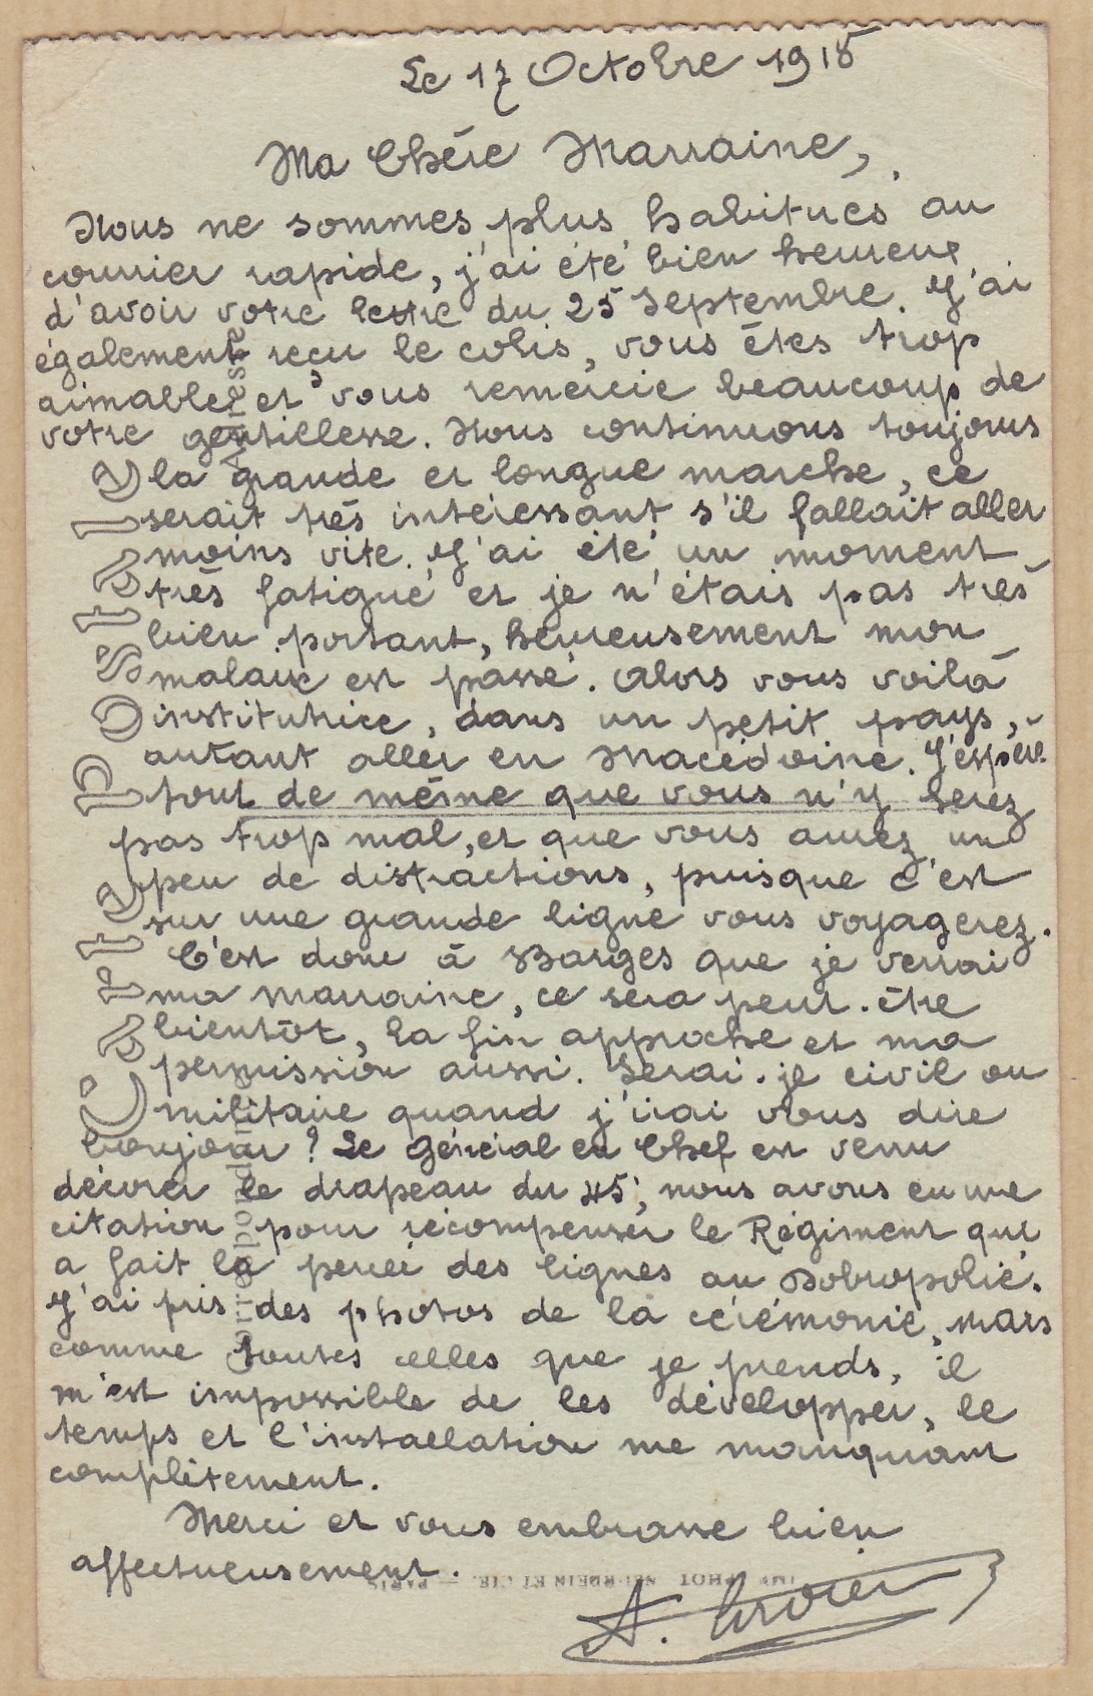 Le 17 Octobre 1918
Ma Chére Marraine,
Nous ne sommes plus habitués au
courrier rapide, j'ai été bien heureux
d'avoir votre lettre du 25 Septembre. J'ai
également reçu le colis, vous étes trop
aimable, et vous remercie beaucoup de
votre gentillesse. Nous continuons toujours
la grande et longue marche, ce
serait trés intéressant s'il fallait aller
moins vite. J'ai été un moment
trés fatigué et je n'étais pas tres
bien portant, heureusement mon
malaise est passé. Alors vous voilà
institutrice, dans un petit pays,
autant aller en Macédoine. J'espère
tout de méme que vous n'y serez
pas trop mal, et que vous aurez un
peu de distractions, puisque c'est
sur une grande ligne vous voyagerez.
C'est donc à Barges que je verrai
ma marraine, ce sera peut-étre
bientôt, la fin approche et ma
permission aussi. Serai-je civil ou
militaire quand j'irai vous dire
bonjour ? Le Général en Chef est venu
décorer le drapeau du 45, nous avons eu une
citation pour récompenser le Régiment qui
a fait la percée des lignes au Dobropolié.
J'ai pris des photos de la cérémonie, mais
comme toutes celles que je prends, il
m'est impossible de les développer, le
temps et l'installation me manquant
complètement.
Merci et vous embrasse bien
affectueusement.
Carte Postale
Adresse
Correspondance
IMP. PHOT. NEURDEIN ET CIE. — PARIS
A.